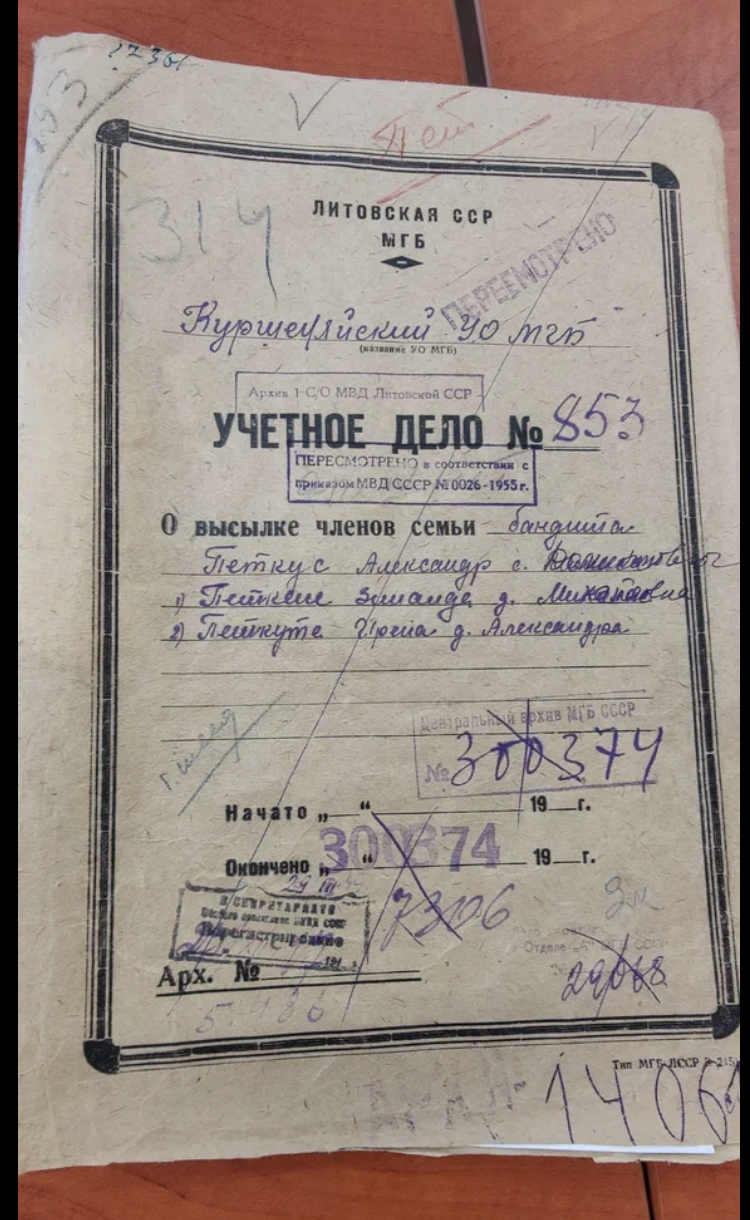 1236
Пет
314
ЛИТОВСКАЯ ССР
МГБ
ПЕРЕСМОТРЕНО
Куршенайский УО МГБ
(название УО МГБ)
Архив 1 С/О МВД Литовской ССР
УЧЕТНОЕ ДЕЛО № 853
ПЕРЕСМОТРЕНО в соответствии с
приказом МВД СССР № 0026-1955 г.
О высылке членов семьи бандита
Петкус Александр с.
1) Петкене д. Михайловна
2) Петкуте Ирена д. Александра
Центральный архив МГБ СССР
№ 300374
Начато „ — “ 19 — г.
300374
Окончено „ “ 19 — г.
29 III
В СЕКРЕТАРИАТЕ
Зарегистрировано
7306
Отделе „А“ МГБ СССР
29068
Арх. №
5.486
Тип МГБ ЛССР